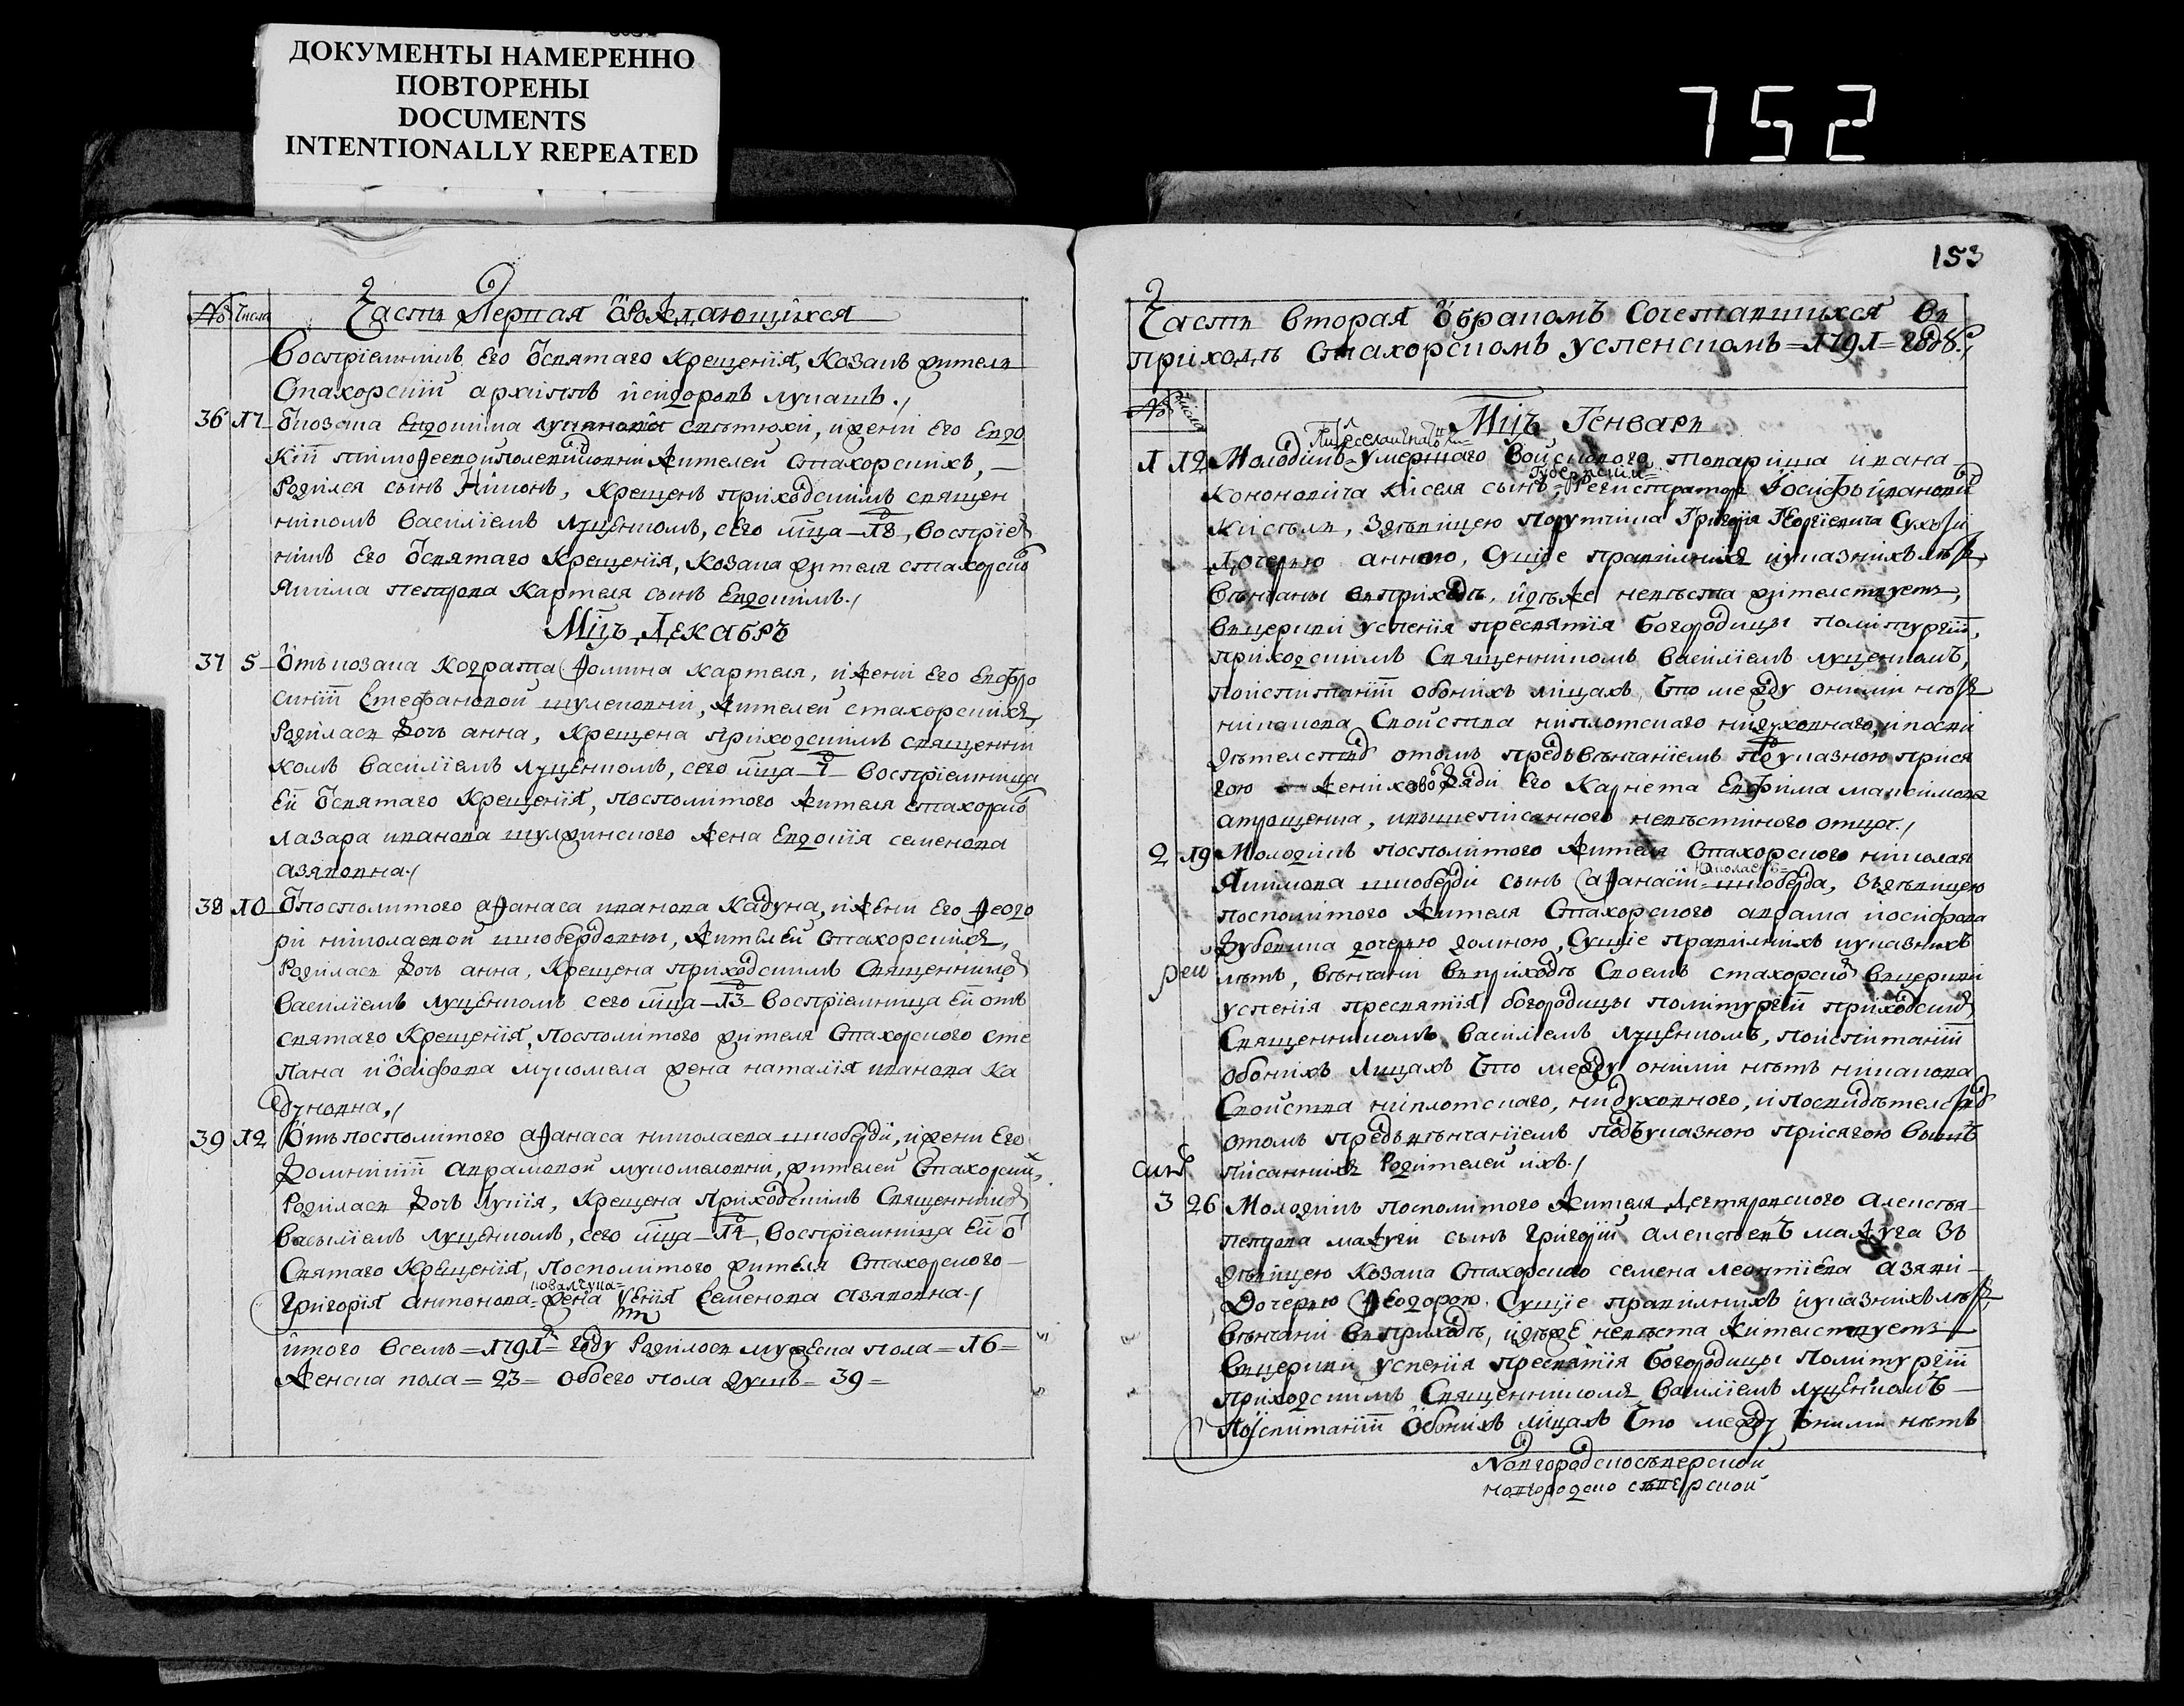 ДОКУМЕНТЫ НАМЕРЕННО
ПОВТОРЕНЫ
DOCUMENTS
INTENTIONALLY REPEATED
752
№ Числа Часть Первая ѽРождающихся
Воспріемникъ его ѽсвятаго Крещенія, Козакъ житель
Стахорскій архіппъ ісідоровъ лукашъ./
36 17 ѽкозака Евдокима сѣтюхи, ижени его Евдо
Кіи тимофеевой, жителей Стахорскихъ,
Родился сынъ Никонъ, Крещенъ приходскимъ священ
никомъ Василіемъ Луценкомъ, сего мца 18, воспріем
никъ его ѽсвятаго Крещенія, Козака жителя стахорско
Якима петрова Картеля сынъ Евдокимъ./
Мцъ Декабръ
37 5 ѽтъ козака Кодрата Фомина Картеля, ижени его Евфро
синіи Стефановой шулековни, жителей стахорскихъ,
Родилась дочь анна, Крещена приходскимъ священни
комъ Василіемъ Луценкомъ, сего мца 7 воспріемница
Ей ѽсвятаго Крещенія, посполитого жителя стахорско
лазара иванова шулжинского жена Евдокія семенова
азаровна./
38 10 ѽпосполитого афанаса иванова Кадуна, ижени его феодо
ри николаевой шкобердовны, жителей Стахорскихъ,
Родилась дочь анна, Крещена приходскимъ Священнико
Василіемъ Луценкомъ сего мца 13 воспріемница Ей отъ
святаго Крещенія, посполитого жителя Стахорского сте
пана іѽсіфова мукомела жена наталія иванова Ка
дуновна./
39 12 ѽтъ посполитого афанаса николаева шкоберди, ижени его
Домникіи аврамовой мукомеловни, жителей Стахорских,
Родилась дочь Лукія, Крещена Приходскимъ Священнико
Василіемъ Луценкомъ, сего мца 14, воспріемница Ей ѽ
Святаго Крещенія, посполитого жителя Стахорского
ковалчука
Григорія антонова жена Ксенія Семенова азаровна./
итого всемъ 1791 году Родилось мужеска пола = 16 =
женска пола = 23 = обоего пола душъ = 39 =
153
Часть вторая ѽбракомъ Сочетавшихся въ
приходѣ Стахорскомъ успенскомъ = 1791 = годѣ./
№ Числа
Мцъ Генварь
1 12 Молодикъ умершаго войскового товариша ивана
Губернскии
Кононовича Киселя сынъ Регистраторъ Іосифъ івановъ
Кисѣль, Здѣвицею порутчика Григорія Георгіевича
Дочерью анною, Сущіе правилнихъ иуказнихъ лѣтъ
вѣнчаны въприходѣ, идѣже невѣста жителствуетъ,
вцеркви успенія пресвятія Богородицы политургіи,
приходскимъ Священникомъ Василіемъ Луценкомъ,
поиспитаніи обонихъ лицахъ, Что между оними нѣтъ
никакова Свойства ниплотскаго нидуховнаго, ипосви
дѣтелству отомъ предъвѣнчаніемъ подуказною прися
гою женихового дяди его Карнета Евфима максимова
атрощенка, ивышеписанного невѣстиного отца./
2 19 Молодикъ посполитого жителя Стахорского николая
Якимова шкоберди сынъ афанасій шкоберда, Здѣвицею
посполитого жителя Стахорского аврама іосифова
Дубовика дочерью домною, Сущіе правилнихъ иуказнихъ
лѣтъ, вѣнчани въприходѣ Своемъ стахорско вцеркви
успенія пресвятія богородицы политургіи приходским
Священникомъ Василіемъ Луценкомъ, поиспитаніи
обонихъ Лицахъ Что между оними нѣтъ никакова
Свойства ниплотскаго, нидуховного, и посвидѣтелству
отомъ предъвѣнчаніемъ подъуказною присягою више
писаннихъ Родителей ихъ./
3 26 Молодикъ посполитого жителя Дегтяровского алексѣя
петрова мажуги сынъ Григорій алексѣевъ мажуга Зъ
дѣвицею Козака Стахорского семена леонтіева азари
Дочерью Феодорою, Сущіе правилнихъ иуказнихъ лѣтъ,
вѣнчани въприходѣ, идѣже невѣста жителствуетъ
вцеркви успенія пресвятія Богородицы политургіи
приходскимъ Священникомъ Василіемъ Луценкомъ
Поиспитаніи ѽбонихъ лицахъ Что между ѽними нѣтъ
Новгородскосѣверской
новгородско сѣверской